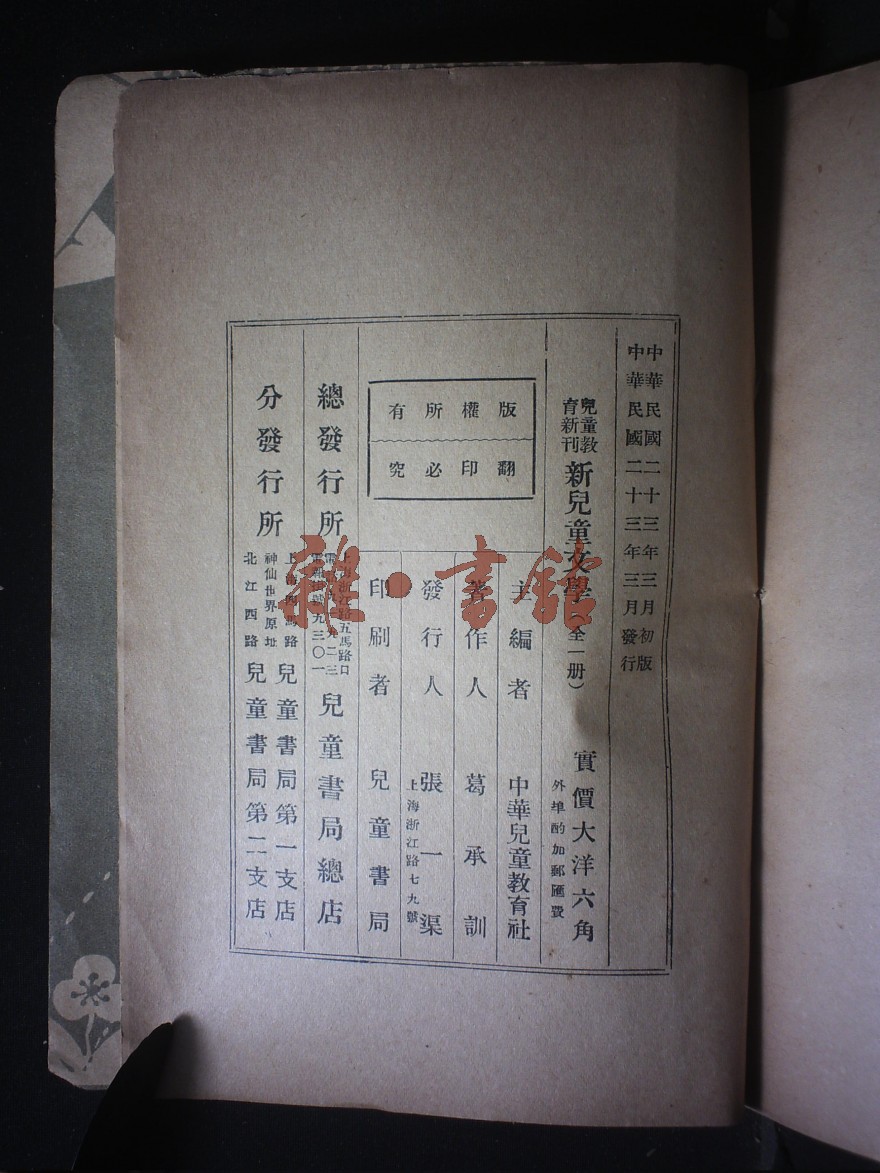 中華民國二十三年三月初版
中華民國二十三年三月發行
兒童教育新刊
新兒童文學(全一册)
實價大洋六角
外埠酌加郵匯費
版權所有
翻印必究
主編者 中華兒童教育社
著作人 葛承訓
發行人 張一渠
上海浙江路七九號
印刷者 兒童書局
總發行所
上海浙江路五馬路口
兒童書局總店
分發行所
上海四馬路
神仙世界原址
兒童書局第一支店
北江西路
兒童書局第二支店
雜·書館